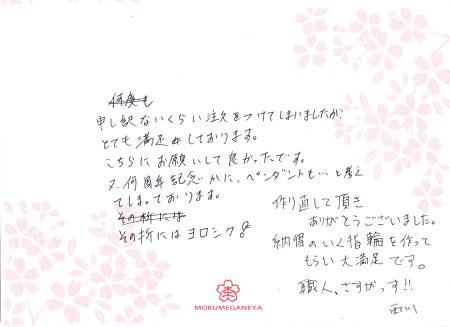 何度も
申し訳ないくらい注文をつけてしまいましたが、
とても満足しております。
こちらにお願いして良かったです。
又、何周年記念かに、ペンダントも…と考え
てしまっております。
その折には
その折にはヨロシク!
作り直して頂き
ありがとうございました。
納得のいく指輪を作って
もらい大満足です。
職人、さすがっす!!
MOKUMEGANEYA